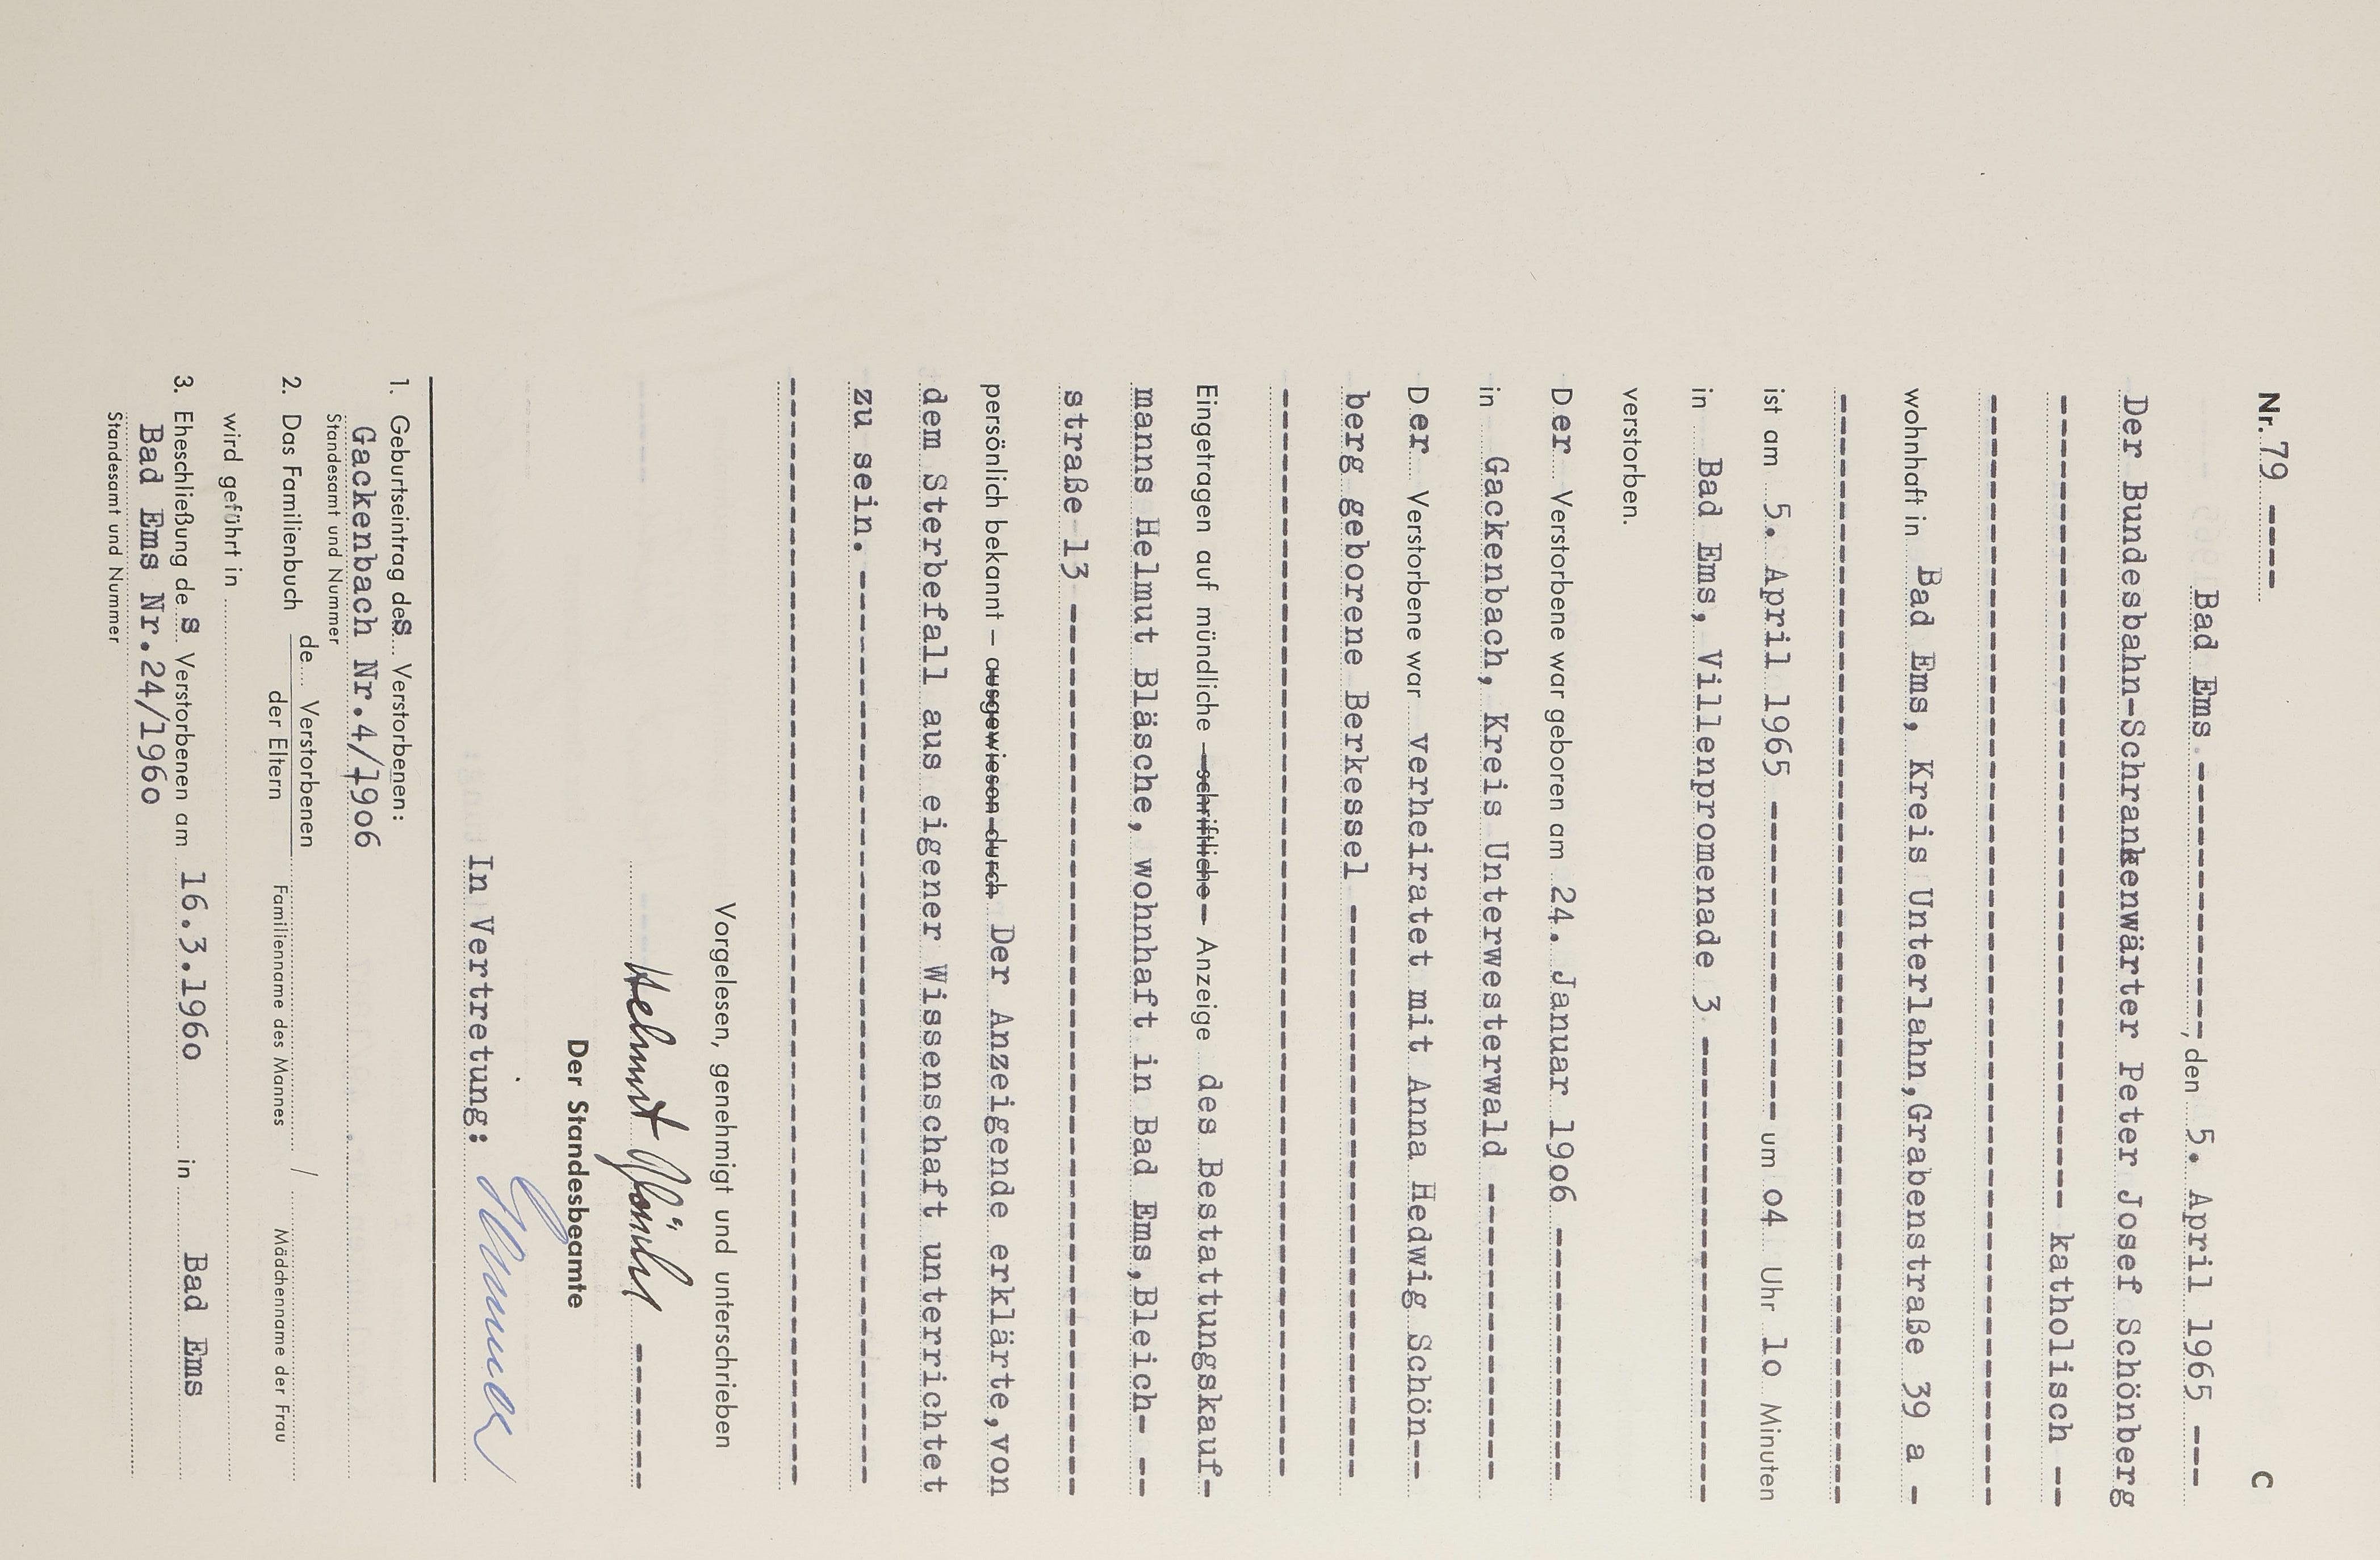 Nr. 79 ---- C
Bad Ems ------------, den 5. April 1965 ---
Der Bundesbahn-Schrankenwärter Peter Josef Schönberg
---------------------------------------- katholisch --
------------------------------------------------------
wohnhaft in Bad Ems, Kreis Unterlahn,Grabenstraße 39 a -
------------------------------------------------------
ist am 5. April 1965 --------------- um o4 Uhr 1o Minuten
in Bad Ems, Villenpromenade 3 ----------------------
verstorben.
Der Verstorbene war geboren am 24. Januar 19o6 ------------
in Gackenbach, Kreis Unterwesterwald --------------
Der Verstorbene war verheiratet mit Anna Hedwig Schön--
berg geborene Berkessel ---------------------------
------------------------------------------------------
Eingetragen auf mündliche – schriftliche – Anzeige des Bestattungskauf-
manns Helmut Bläsche, wohnhaft in Bad Ems,Bleich- --
straße 13 -------------------------------------------
persönlich bekannt – ausgewiesen durch Der Anzeigende erklärte,von
dem Sterbefall aus eigener Wissenschaft unterrichtet
zu sein. --------------------------------------------
------------------------------------------------------
Vorgelesen, genehmigt und unterschrieben
Helmut Bläsche -------
Der Standesbeamte
In Vertretung:
1. Geburtseintrag des Verstorbenen:
Gackenbach Nr.4/19o6
Standesamt und Nummer
2. Das Familienbuch de Verstorbenen / Familienname des Mannes Mädchenname der Frau
der Eltern
wird geführt in
3. Eheschließung des Verstorbenen am 16.3.196o in Bad Ems
Bad Ems Nr.24/196o
Standesamt und Nummer